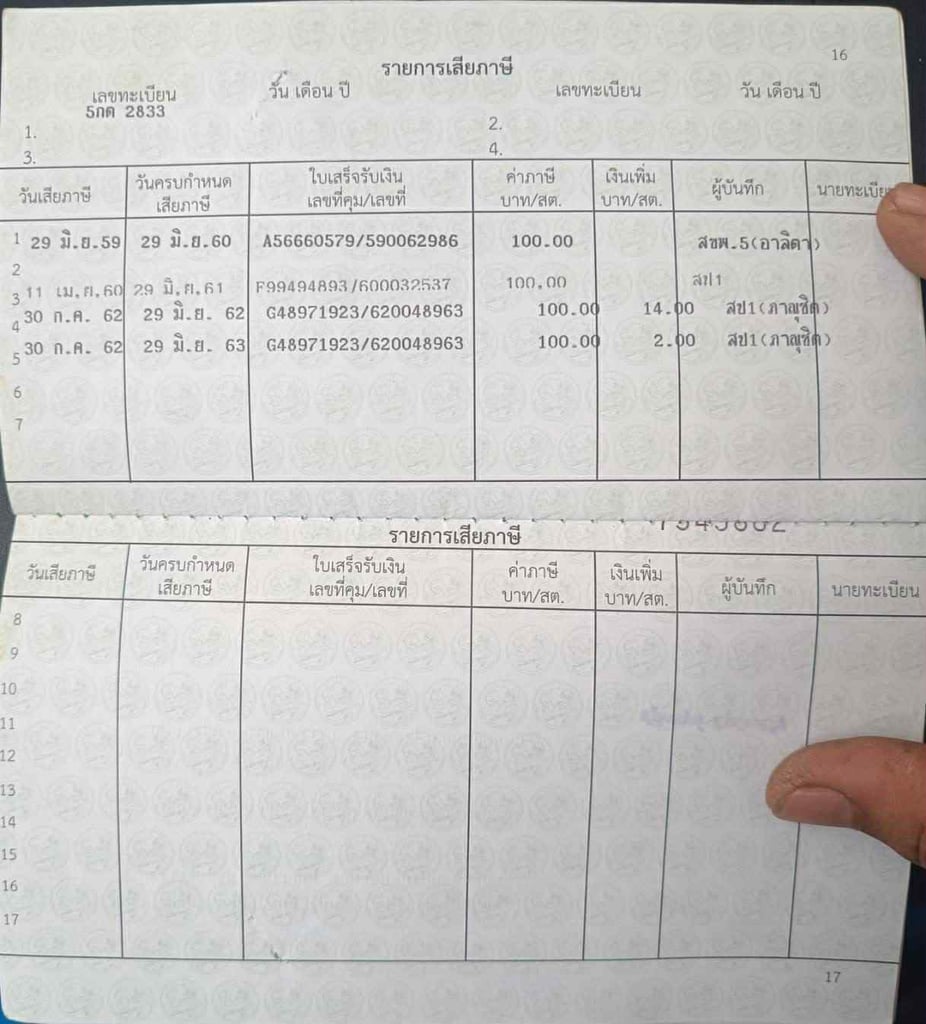 16
รายการเสียภาษี
เลขทะเบียน วัน เดือน ปี เลขทะเบียน วัน เดือน ปี
5กด 2833
1. 2.
3. 4.
วันเสียภาษี วันครบกำหนดเสียภาษี ใบเสร็จรับเงิน เลขที่คุม/เลขที่ ค่าภาษี บาท/สต. เงินเพิ่ม บาท/สต. ผู้บันทึก
1 29 มิ.ย.59 29 มิ.ย.60 A56660579/590062986 100.00 สขพ.5(อาลิตา)
2
3 11 เม.ย.60 29 มิ.ย.61 F99494893/600032537 100.00 สป1
4 30 ก.ค. 62 29 มิ.ย. 62 G48971923/620048963 100.00 14.00 สป1(ภาณุชิต)
5 30 ก.ค. 62 29 มิ.ย. 63 G48971923/620048963 100.00 2.00 สป1(ภาณุชิต)
6
7
รายการเสียภาษี
วันเสียภาษี วันครบกำหนดเสียภาษี ใบเสร็จรับเงิน เลขที่คุม/เลขที่ ค่าภาษี บาท/สต. เงินเพิ่ม บาท/สต. ผู้บันทึก นายทะเบียน
8
9
10
11
12
13
14
15
16
17
17